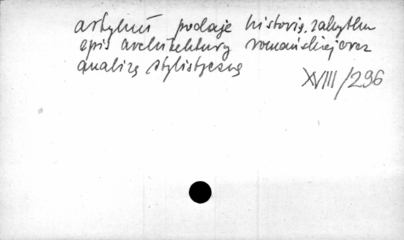 artykuł podaje historię zabytku
opis architektury romańskiej oraz
analizę stylistyczną
XVIII/296